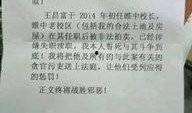 王昌富于 2014 年初任睢中校长，
睢中老校区（包括我的合法土地及房
屋）在其任职后被非法拍卖，已经涉
嫌失职渎职。我本人誓死与其斗争到
底！我将把他及所有的与此案有关的
贪官污吏送上法庭，让他们受到应得
的惩罚！
正义终将战胜邪恶！